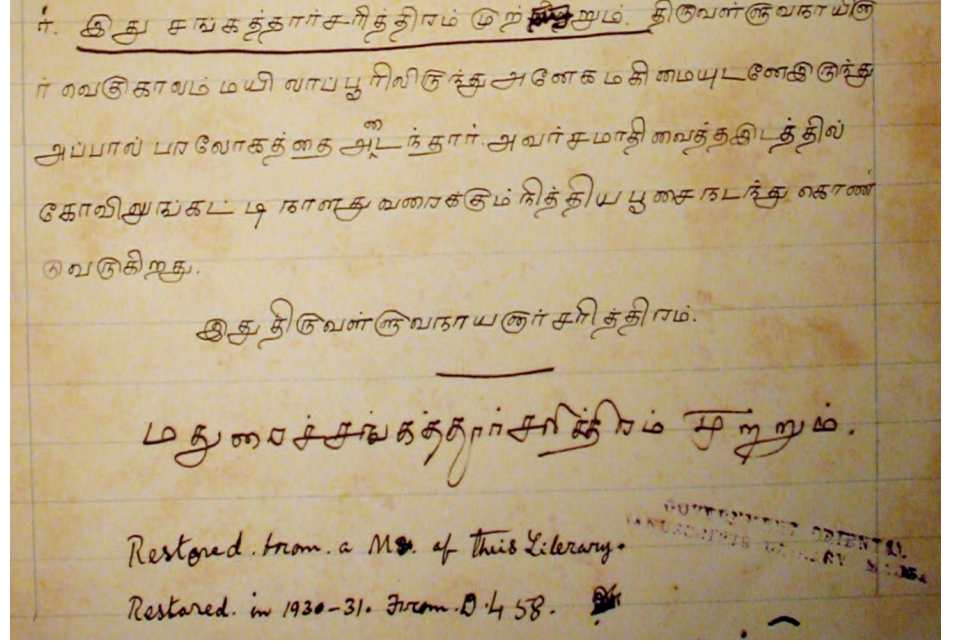 ர். இது சங்கத்தார்சரித்திரம் முற்றும். திருவள்ளுவநாயனா
ர் வெகுகாலம் மயிலாப்பூரிலிருந்து அனேக மகிமையுடனேஇருந்து
அப்பால் பரலோகத்தை அடைந்தார். அவர்சமாதி வைத்தஇடத்தில்
கோவிலுங்கட்டி நாளது வரைக்கும் நித்திய பூசைநடந்து கொண்
டுவருகிறது.
இது திருவள்ளுவநாயனார் சரித்திரம்.
மதுரைச்சங்கத்தார்சரித்திரம் முற்றும்.
Restored. from. a Ms. of this Library.
Restored. in 1930-31. From. D. 458.
GOVERNMENT ORIENTAL
MANUSCRIPTS LIBRARY MADRAS